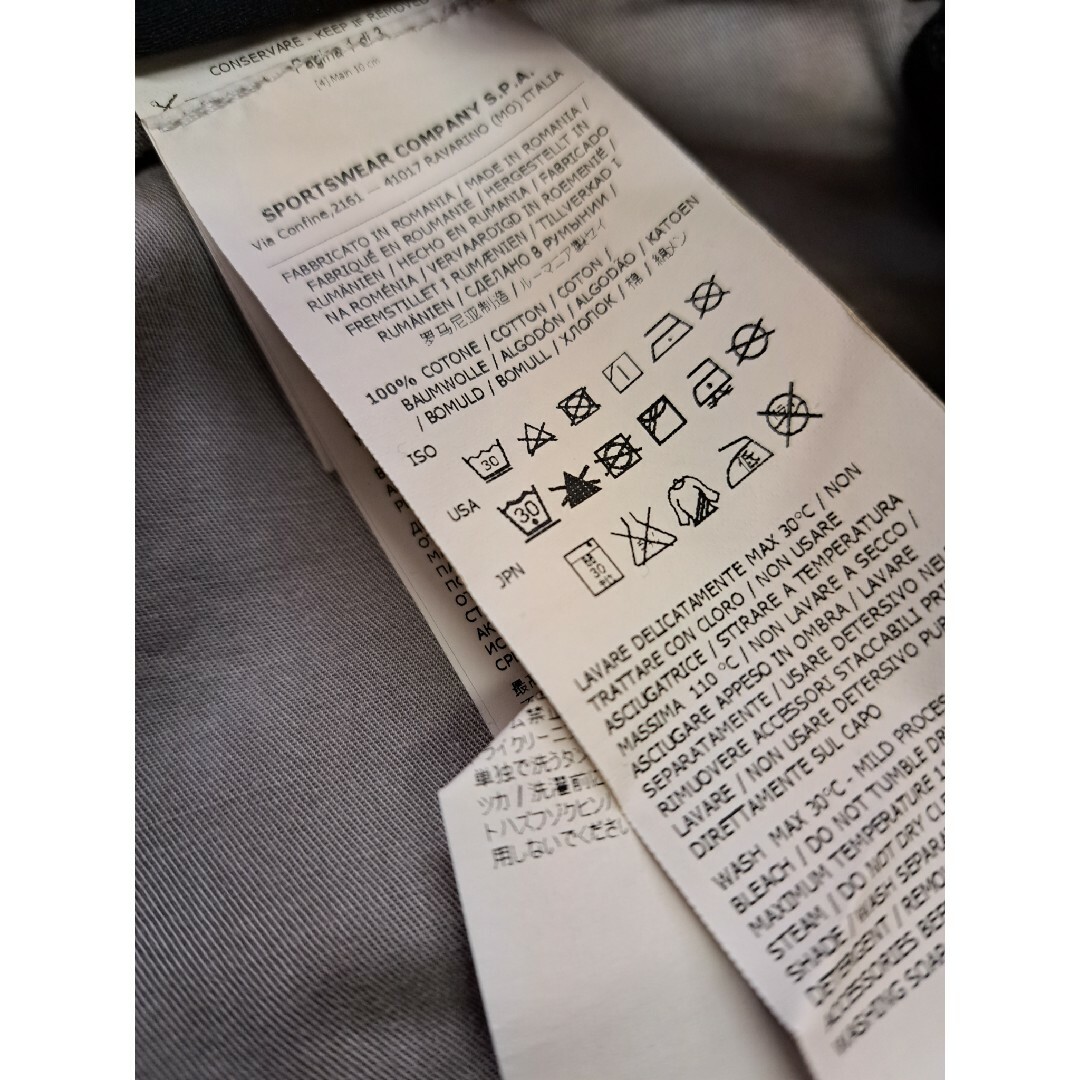 CONSERVARE - KEEP IF REMOVED
Pagina 1 di 3
[4] Main 10 cm
SPORTSWEAR COMPANY S.P.A.
Via Confine,2161 — 41017 RAVARINO (MO) ITALIA
FABBRICATO IN ROMANIA / MADE IN ROMANIA /
FABRIQUÉ EN ROUMANIE / HERGESTELLT IN
RUMÄNIEN / HECHO EN RUMANIA / FABRICADO
NA ROMÉNIA / VERVAARDIGD IN ROEMENIË /
FREMSTILLET I RUMÆNIEN / TILLVERKAD I
RUMÄNIEN / СДЕЛАНО В РУМЫНИИ /
罗马尼亚制造 / ルーマニア製
100% COTONE / COTTON / COTON /
BAUMWOLLE / ALGODÓN / ALGODÃO / KATOEN
/ BOMULD / BOMULL / ХЛОПОК / 棉 / 綿メン
ISO
30
USA
30
JPN
30
低
LAVARE DELICATAMENTE MAX 30°C / NON
TRATTARE CON CLORO / NON USARE
ASCIUGATRICE / STIRARE A TEMPERATURA
MASSIMA 110 °C / NON LAVARE A SECCO /
ASCIUGARE APPESO IN OMBRA / LAVARE
SEPARATAMENTE / USARE DETERSIVO
RIMUOVERE ACCESSORI STACCABILI
LAVARE / NON USARE DETERSIVO
DIRETTAMENTE SUL CAPO
WASH MAX 30°C - MILD PROCES
BLEACH / DO NOT TUMBLE DR
MAXIMUM TEMPERATURE 1
STEAM / DO NOT DRY CLE
SHADE / WASH SEPAR
DETERGENT / REMO
ACCESSORIES BEF
WASHING SOA
単独で洗う
ツカ / 洗濯前に
トハズフゾクヒン
用しないでください